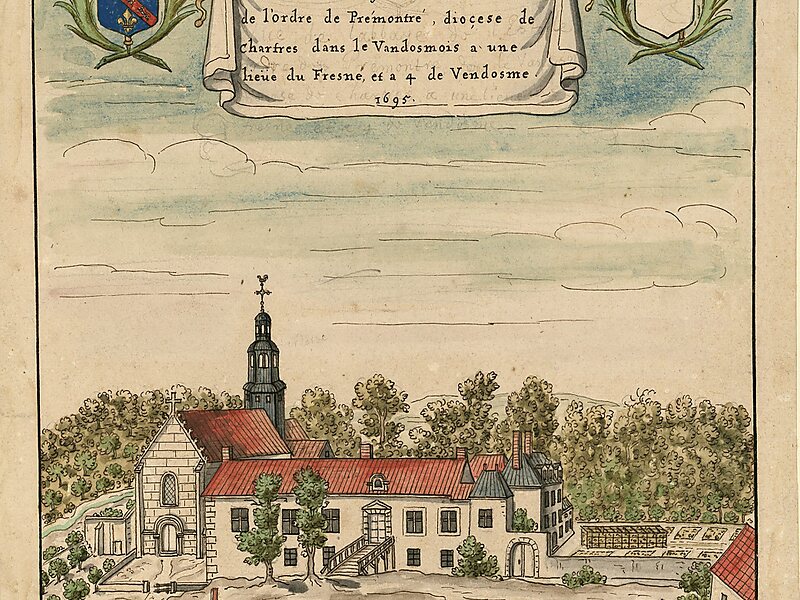 de l'ordre de Prémontré, diocese de
Chartres dans le Vandosmois a une
lieüe du Fresne, et a 4 de Vendosme.
1695.